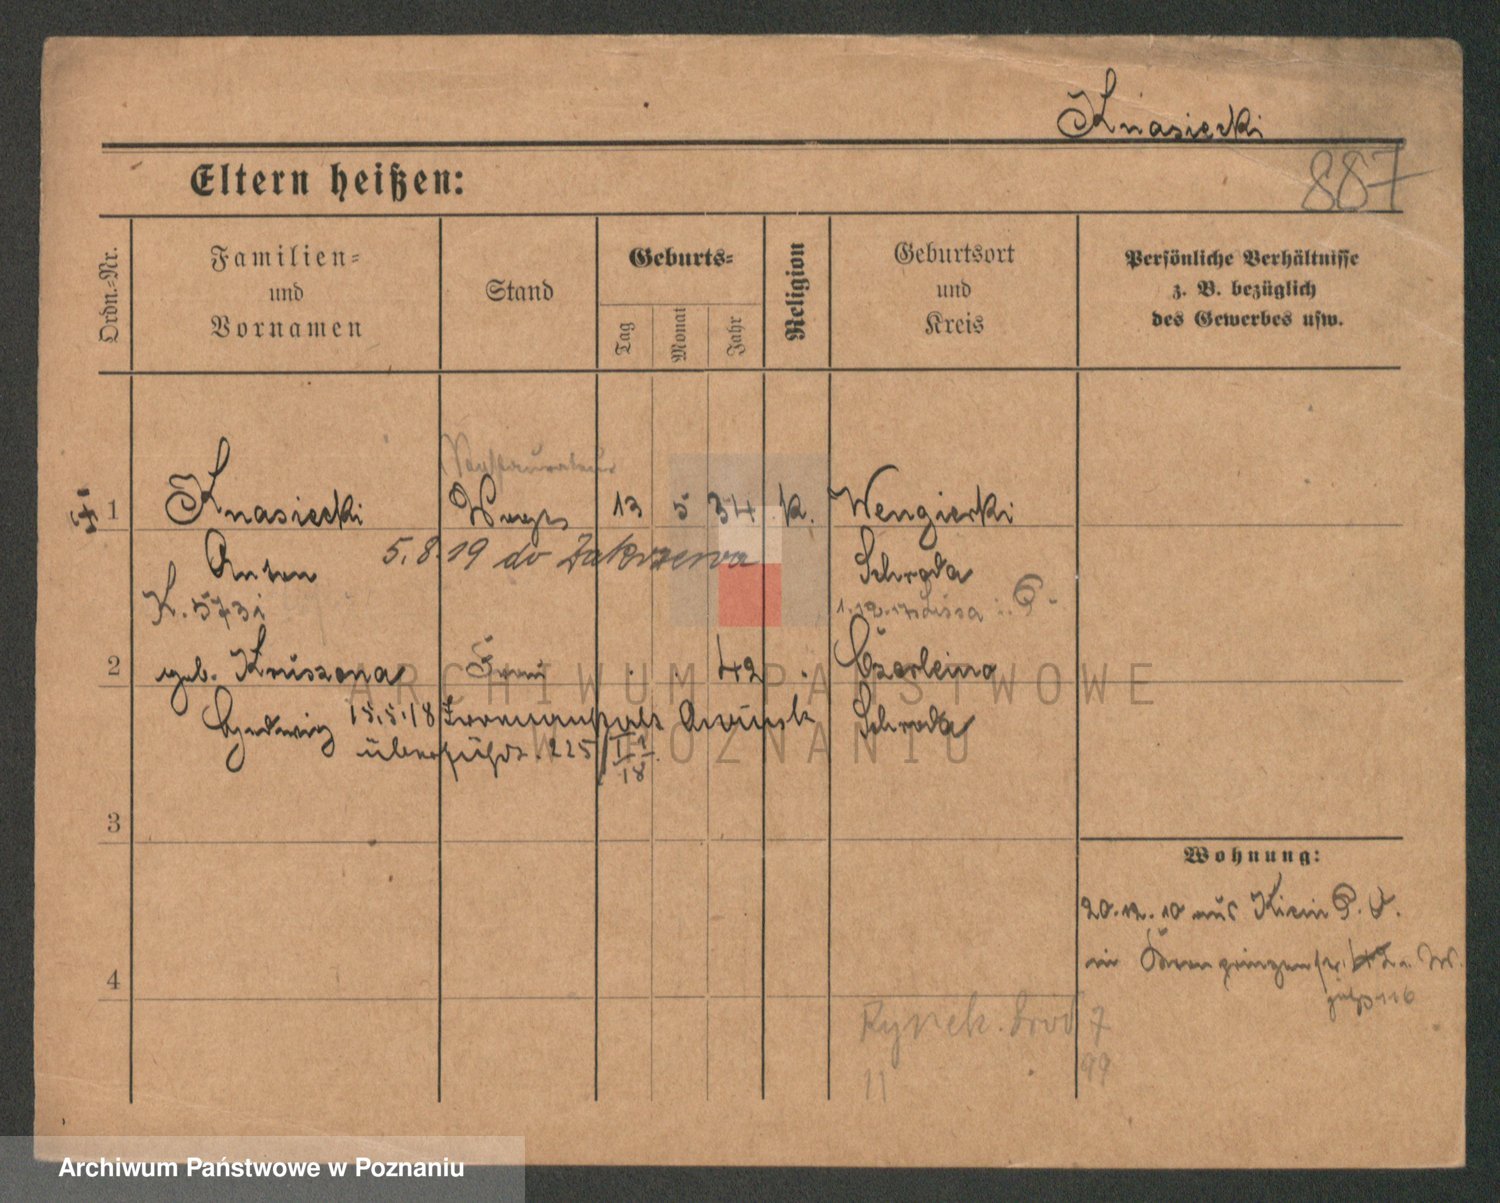 Knasiecki
887
Eltern heißen:
Ordn.-Nr.
Familien-
und
Vornamen
Stand
Geburts-
Tag
Monat
Jahr
Religion
Geburtsort
und
Kreis
Persönliche Verhältnisse
z. B. bezüglich
des Gewerbes usw.
1 Knasiecki 13 5 34 k. Wengierki
5.8.19 do Zakrzewa
Anton Schroda
K. 573i
1.12.17 Lissa i. P.
2 geb. Kruszona Frau 42 Czerleino
Hedwig 15.5.18 Irrenanstalt Owinsk Schroda
überführt. 225/II 1/18
3
4
Wohnung:
20.12.10 aus Kicin P. O.
Kronprinzenstr.
116
Rynek Śród 7
11 99
ARCHIWUM PAŃSTWOWE
W POZNANIU
Archiwum Państwowe w Poznaniu